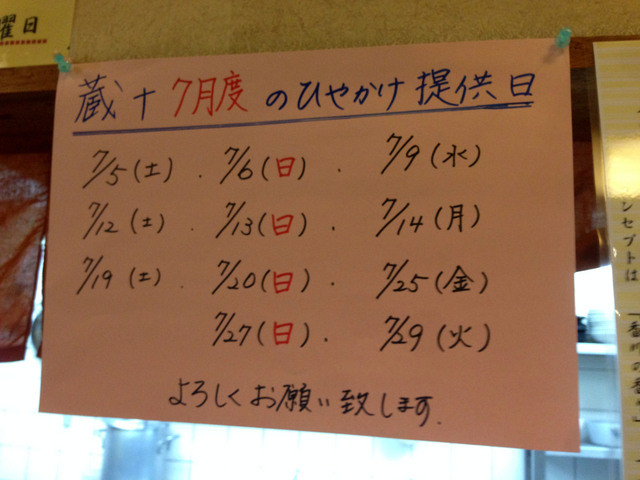 曜日
蔵十 7月度 のひやかけ 提供日
7/5(土). 7/6(日). 7/9(水)
7/12(土). 7/13(日). 7/14(月)
7/19(土). 7/20(日). 7/25(金)
7/27(日). 7/29(火)
よろしくお願い致します.
ンセプトは